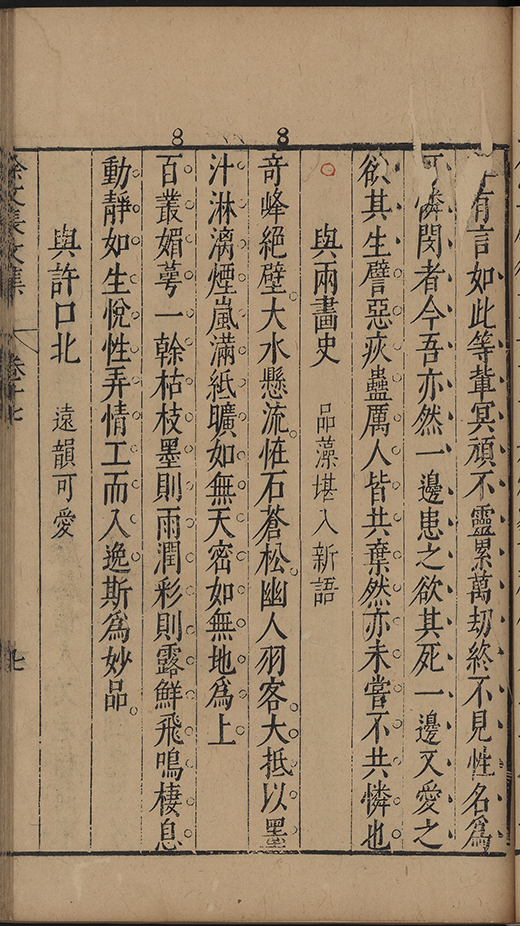 有言如此等軰冥頑不靈累萬刧終不見性名爲
可憐閔者今吾亦然一邊患之欲其死一邊又愛之
欲其生譬惡疢蠱厲人皆共棄然亦未嘗不共憐也
與兩畵史 品藻堪入新語
竒峰絕壁大水懸流恠石蒼松幽人羽客大抵以墨
汁淋漓煙嵐滿紙曠如無天密如無地爲上
百叢媚萼一榦枯枝墨則雨潤彩則露鮮飛鳴棲息
動靜如生悅性弄情工而入逸斯爲妙品
與許口北 遠韻可愛
徐文長文集 卷十七
8 8